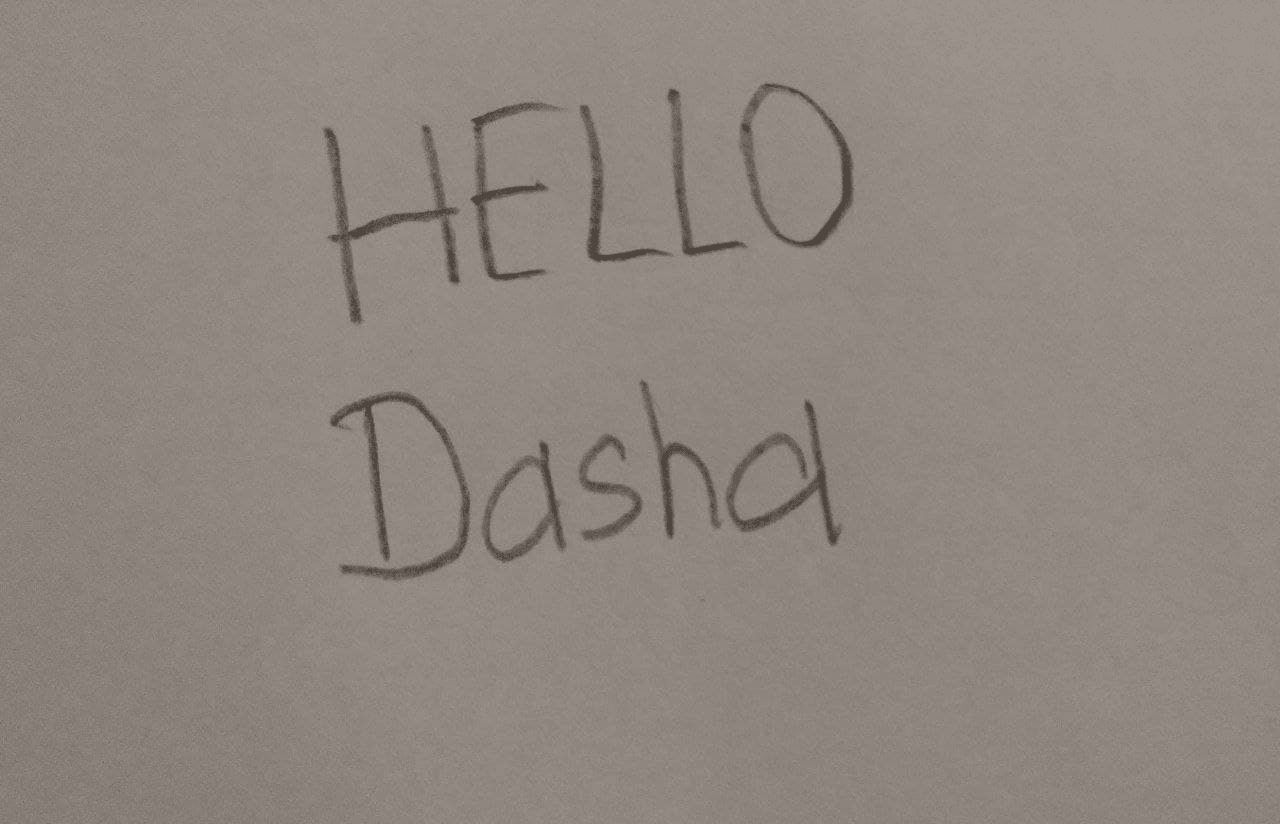 HELLO
Dasha